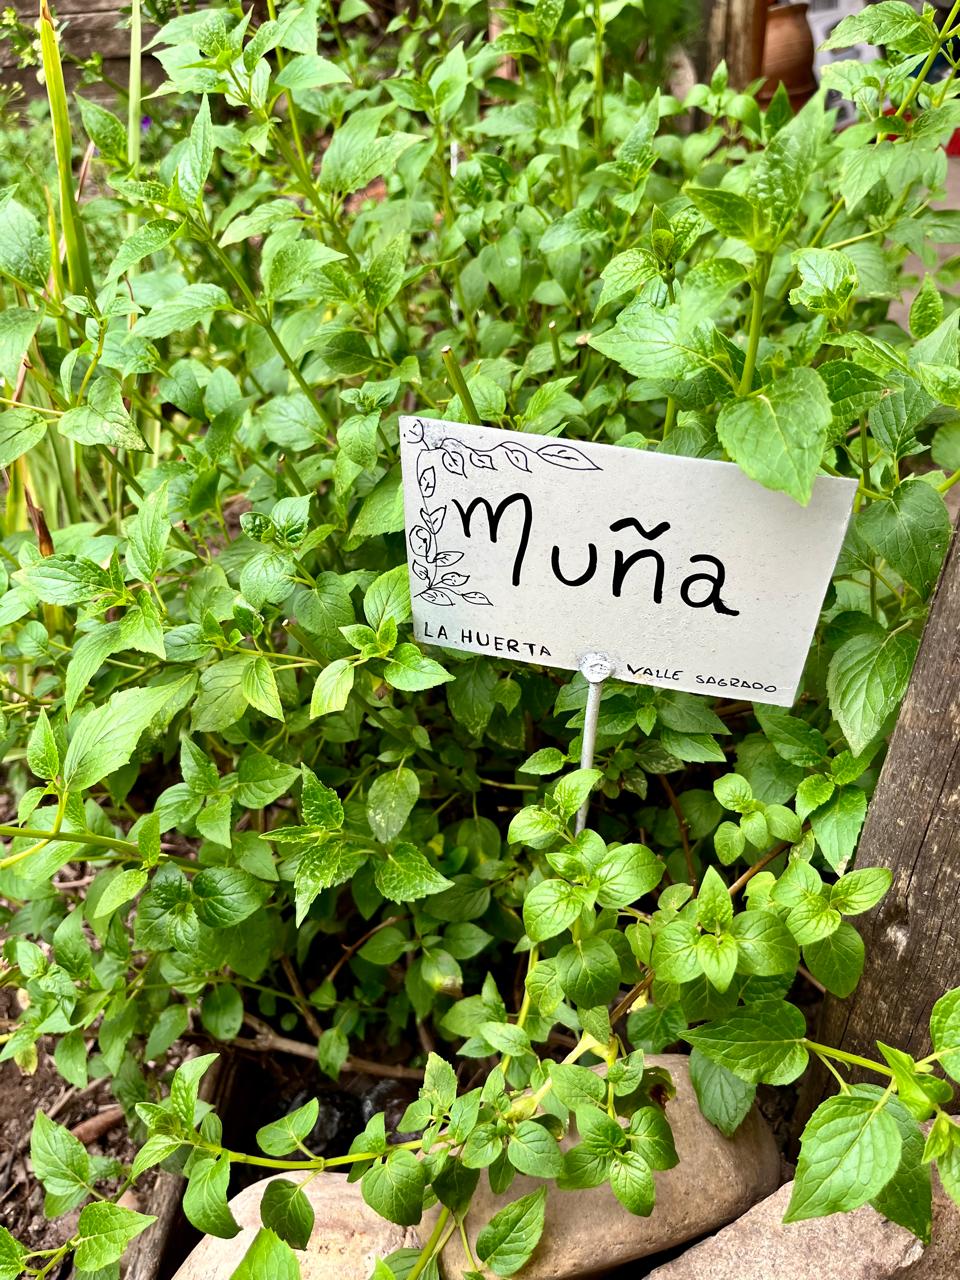 Muña
LA HUERTA
VALLE SAGRADO